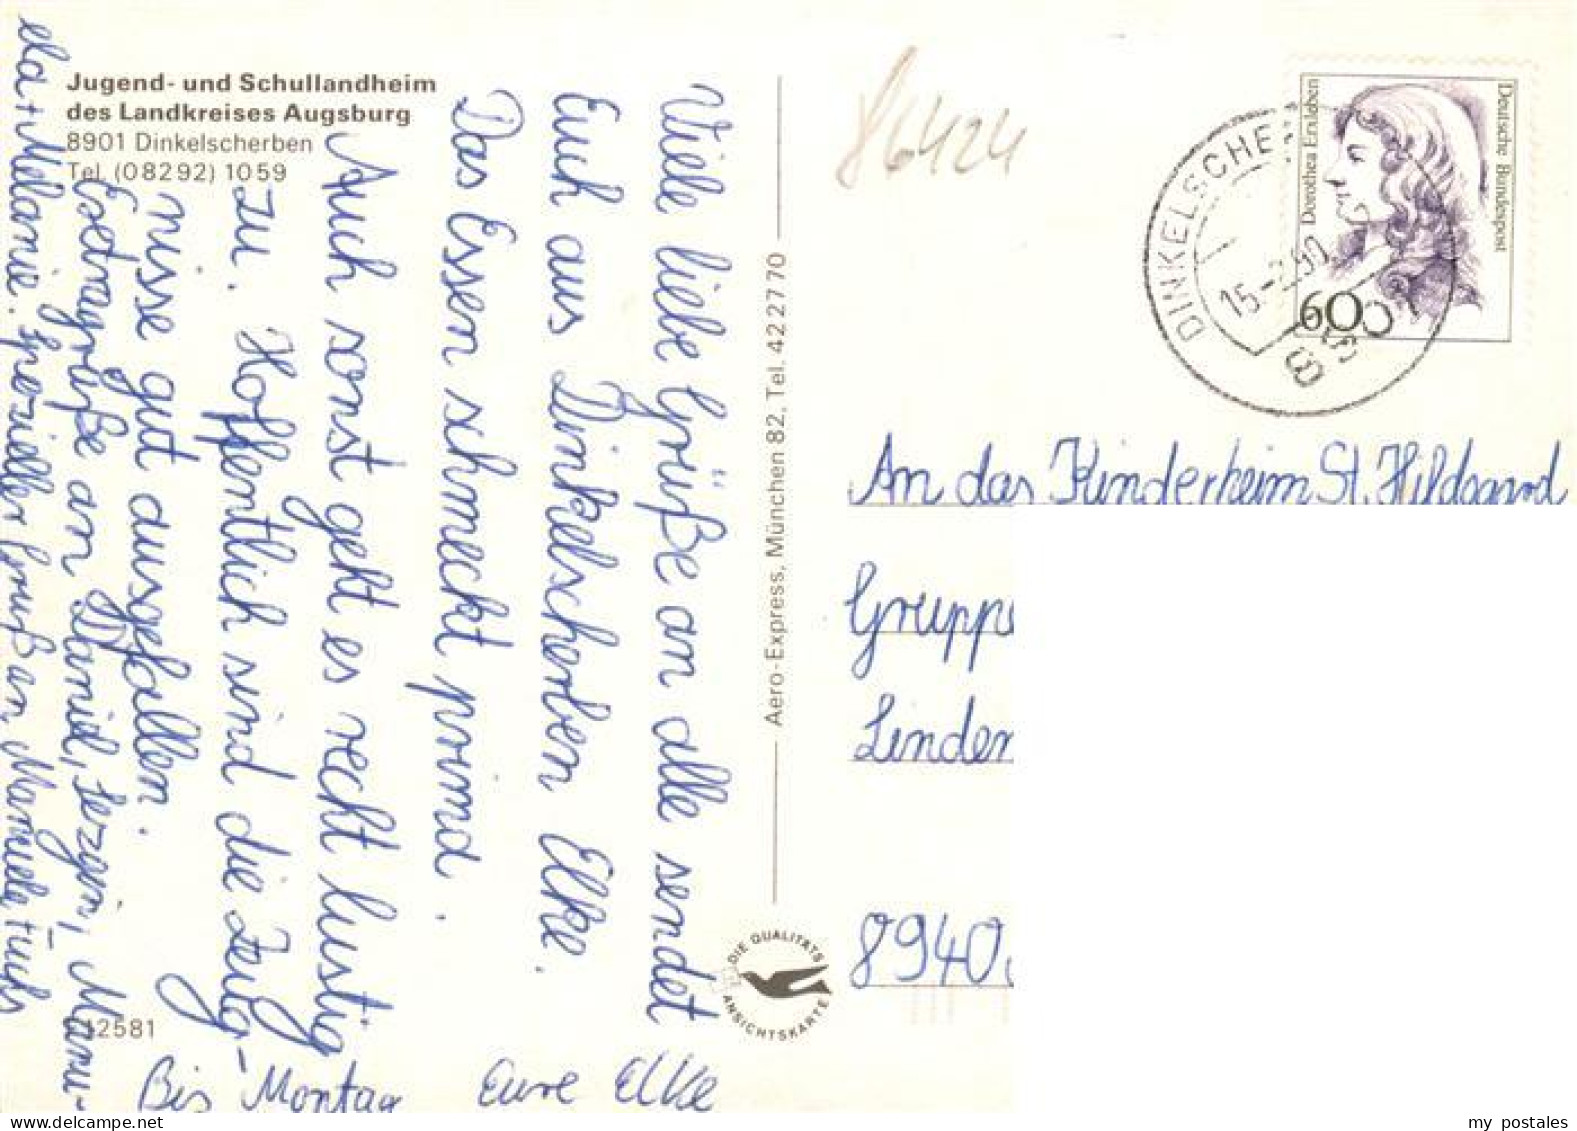 Jugend- und Schullandheim
des Landkreises Augsburg
8901 Dinkelscherben
Tel. (08292) 1059
Viele liebe Grüße an alle sendet
Euch aus Dinkelscherben Elke.
Das Essen schmeckt prima.
Auch sonst geht es recht lustig
zu. Hoffentlich sind die Zeug-
nisse gut ausgefallen.
Extragrüße an Daniel, Manu-
ela + Melanie. Spezieller Gruß an Manuela Fuchs
Bis Montag Eure Elke
12581
Aero-Express, München 82, Tel. 422770
DIE QUALITÄTS
ANSICHTSKARTE
86424
Deutsche Bundespost
Dorothea Erxleben
60
DINKELSCHE
15-2.90
An das Kinderheim St. Hildegard
Gruppe
Linden
8940
my postales